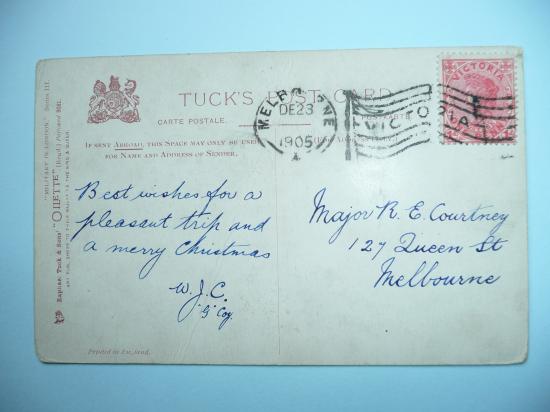 TUCK'S POST CARD
CARTE POSTALE.
POSTKARTE.
IF SENT ABROAD, THIS SPACE MAY ONLY BE USED
FOR NAME AND ADDRESS OF SENDER.
MELBOURNE
DE 23
1905
VICTORIA
VICTORIA
Best wishes for a
pleasant trip and
a merry Christmas
W. J. C.
"G" Coy.
Major R. E. Courtney
127 Queen St
Melbourne
Raphael Tuck & Sons' "OILETTE"
"MILITARY IN LONDON." Series III.
Printed in England.